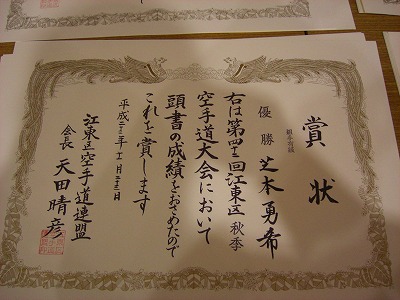 賞状
組手有級
優勝 芝本勇希
右は第四十三回江東区秋季
空手道大会において
頭書の成績をおさめたので
これを賞します
平成二十三年十一月二十三日
江東区空手道連盟
会長 天田晴彦